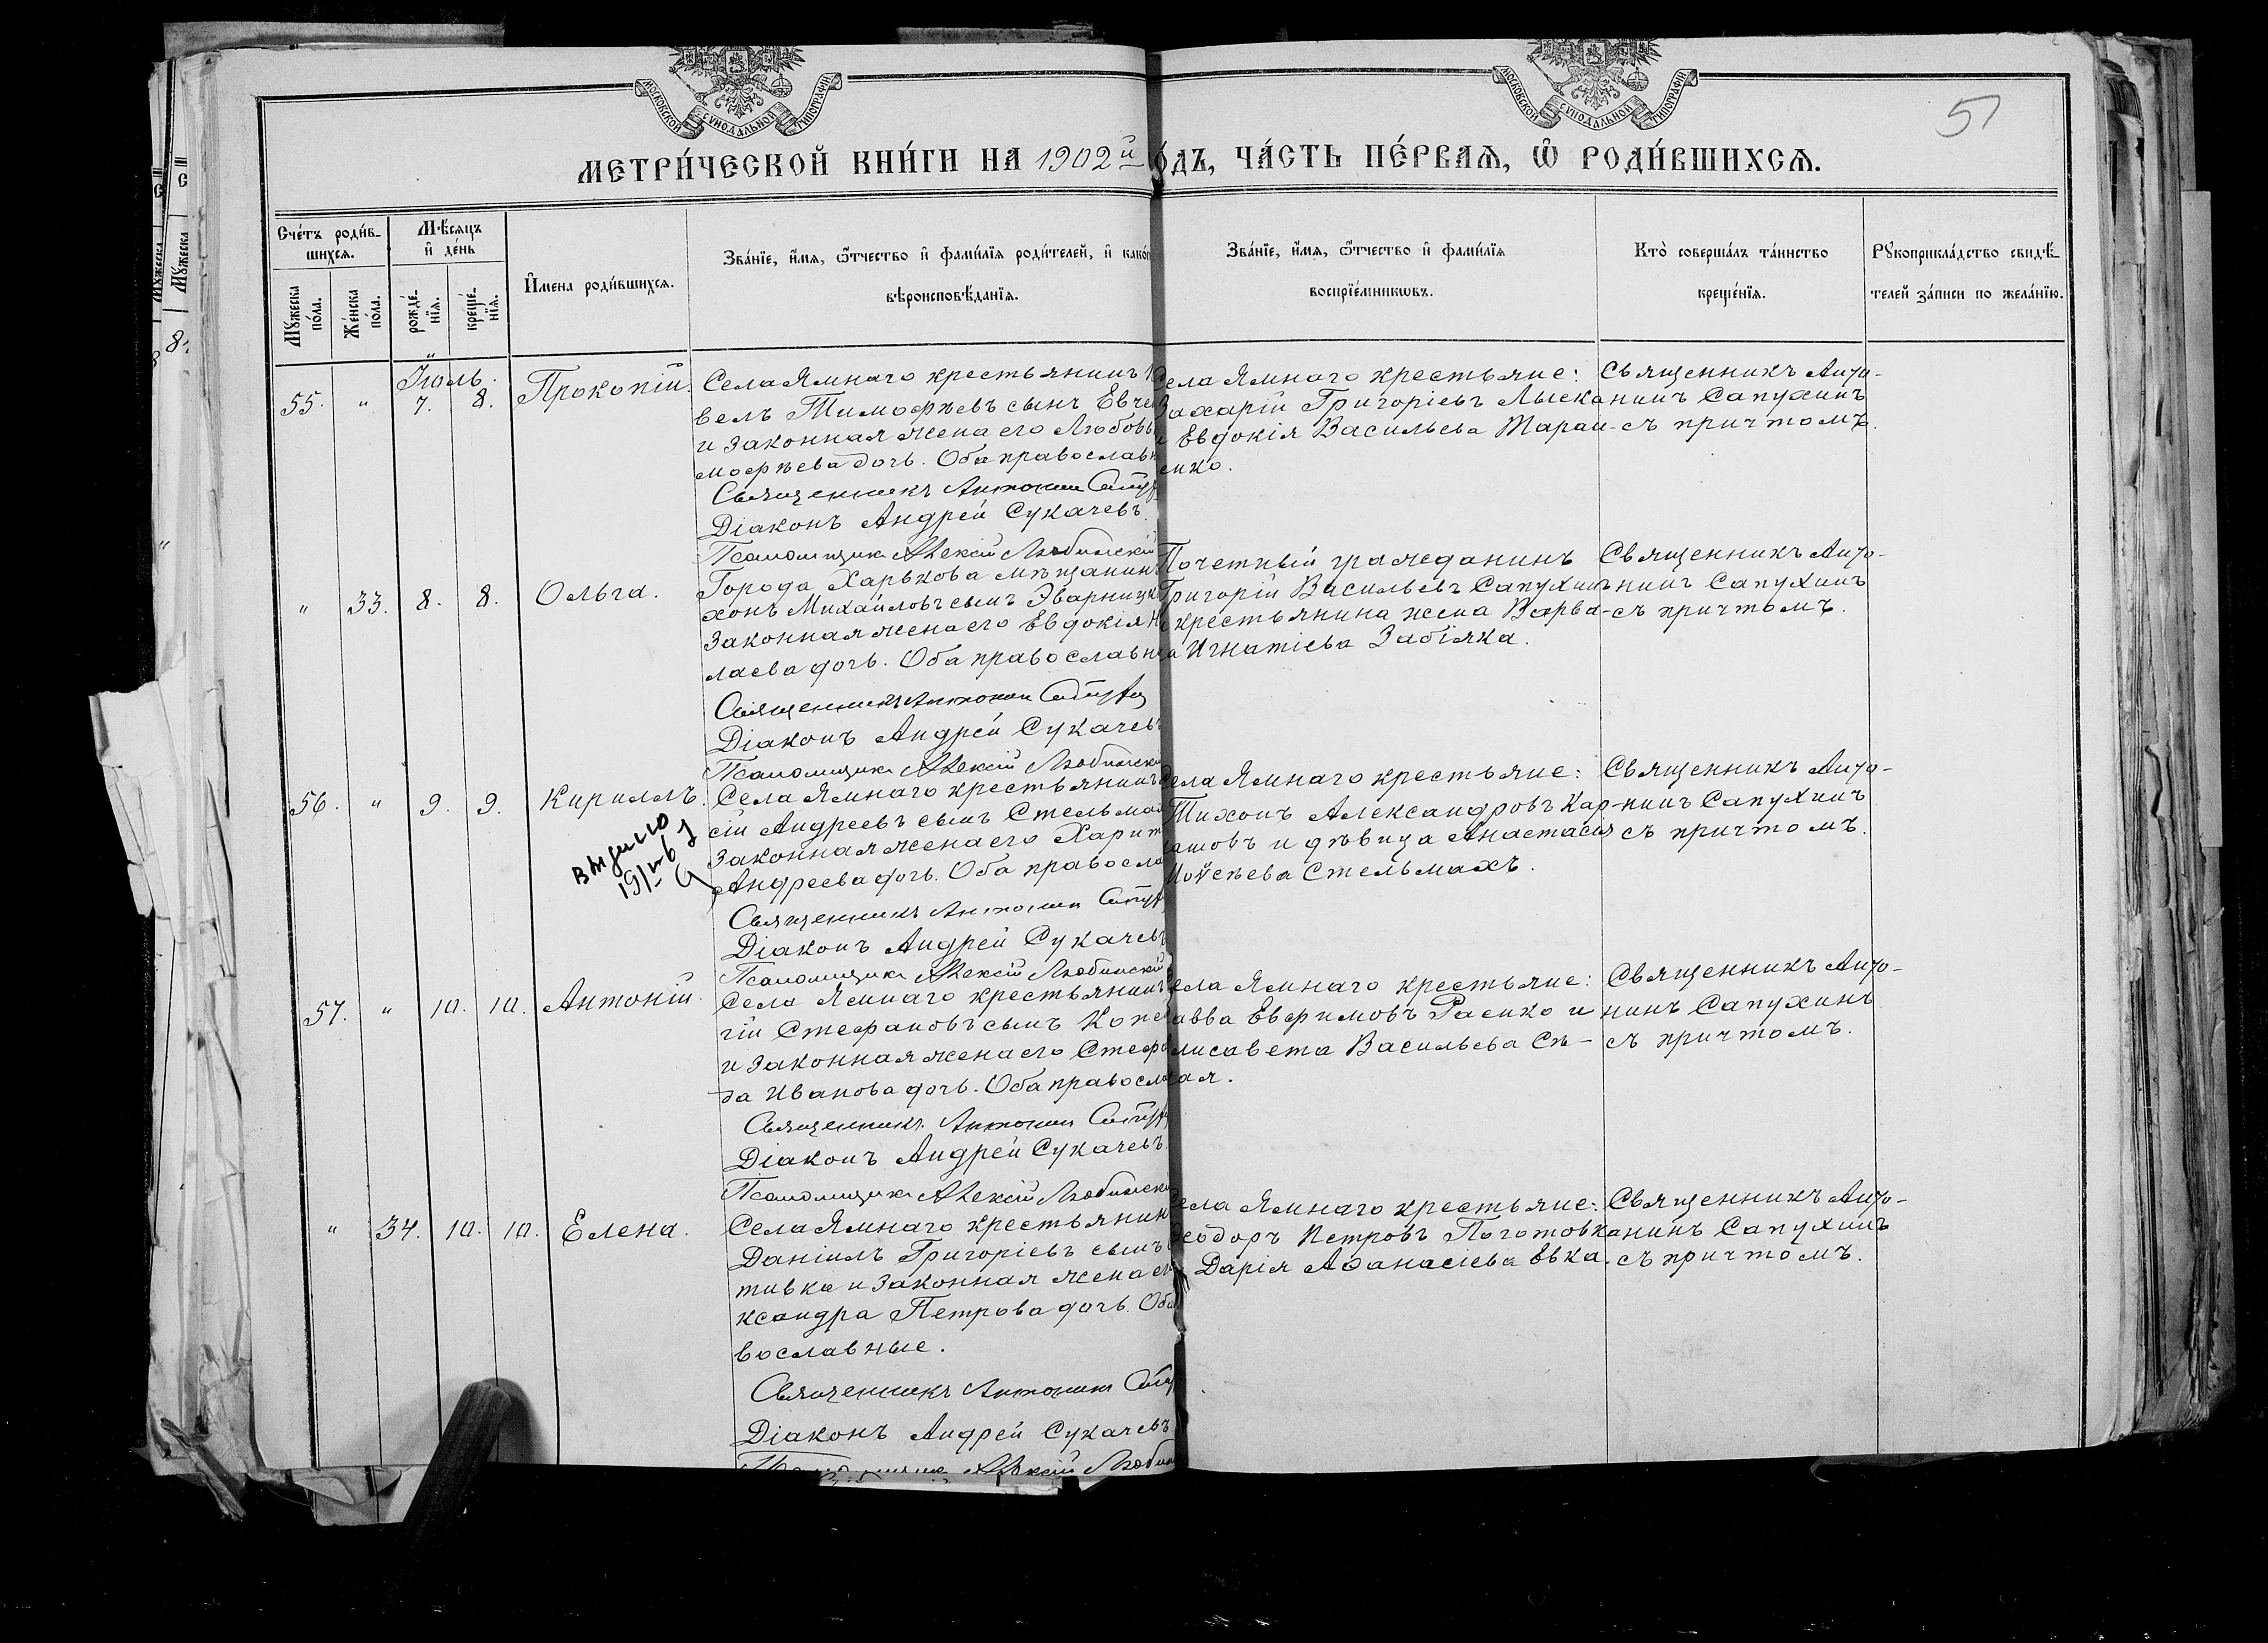 МОСКОВСКОЙ СУНОДАЛЬНОЙ ТИПОГРАФИИ
МОСКОВСКОЙ СУНОДАЛЬНОЙ ТИПОГРАФИИ
51
МЕТРИ́ЧЕСКОЙ КНИ́ГИ НА 1902й О́ДЪ, ЧА́СТЬ ПЕ́РВАѦ, Ѿ РОДИ́ВШИХСѦ.
Сче́тъ роди́в-
шихсѧ.
Мꙋ́жеска по́ла.
Же́нска по́ла.
Мѣ́сѧцъ
и҆ де́нь
рожде́-
нїѧ.
креще́-
нїѧ.
И҆мена роди́вшихсѧ.
Зва́нїе, и҆́мѧ, ѻ҆́тчество и҆ фами́лїѧ роди́телей, и҆ како́г
вѣроисповѣ́данїѧ.
Зва́нїе, и҆́мѧ, ѻ҆́тчество и҆ фами́лїѧ
воспрїе́мникѡвъ.
Кто̀ соверша́лъ та́инство
креще́нїѧ.
Рꙋкоприкла́дство свидѣ́-
телей за́писи по жела́нїю.
55. " Іюль. 7. 8. Прокопій.
Села Ямнаго крестьянинъ
велъ Тимофѣевъ сынъ Евче
и законная жена его Любовь
мофѣева дочь. Оба православн
Священникъ Антонин
Діаконъ Андрей Сукачевъ.
Псаломщикъ Алексій Любинскій
ела Ямнаго крестьяне:
Захарій Григоріевъ Лыска
и Евдокія Васильева Таран-
енко.
Священникъ Анто-
нинъ Сапухинъ
съ причтомъ.
" 33. 8. 8. Ольга.
Города Харькова мѣщанин
хонъ Михайловъ сынъ Эварниц
законная жена его Евдокія Н
лаева дочь. Оба православн
Священникъ Антонин
Діаконъ Андрей Сукачев
Псаломщикъ Алексій Любинскі
Почетный гражданинъ
Григорій Васильевъ Сапухинъ
и крестьянина жена Варва-
ра Игнатіева Забіяка.
Священникъ Анто-
нинъ Сапухинъ
съ причтомъ.
56. " 9. 9. Кириллъ.
Села Ямнаго крестьянинъ
сій Андреевъ сынъ Стельма
законная жена его Харит
Андреева дочь. Оба правосла
Священникъ Антонин
Діаконъ Андрей Сукачевъ
Псаломщикъ Алексій Любинскій
Села Ямнаго крестьяне:
Тихонъ Александровъ Кар-
ашовъ и дѣвица Анастасія
Моѵсеева Стельмахъ.
Священникъ Анто-
нинъ Сапухинъ
съ причтомъ.
57. " 10. 10. Антоній.
Села Ямнаго крестьянинъ
гій Стефановъ сынъ Коне
и законная жена его Стефа
да Иванова дочь. Оба правосла
Священникъ Антонин
Діаконъ Андрей Сукачевъ.
Псаломщикъ Алексій Любинскі
ела Ямнаго крестьяне:
авва Евфимовъ Расико и
лисавета Васильева Съ-
рая.
Священникъ Анто-
нинъ Сапухинъ
съ причтомъ.
" 34. 10. 10. Елена.
Села Ямнаго крестьянин
Даніилъ Григоріевъ сынъ
тивка и законная жена ег
ксандра Петрова дочь. Оба
вославные.
Священникъ Антонин
Діаконъ Андрей Сукачевъ
Алексій Любин
ела Ямнаго крестьяне:
Ѳеодоръ Петровъ Поготовка
и Дарія Аѳанасіева Евка.
Священникъ Анто-
нинъ Сапухинъ
съ причтомъ.